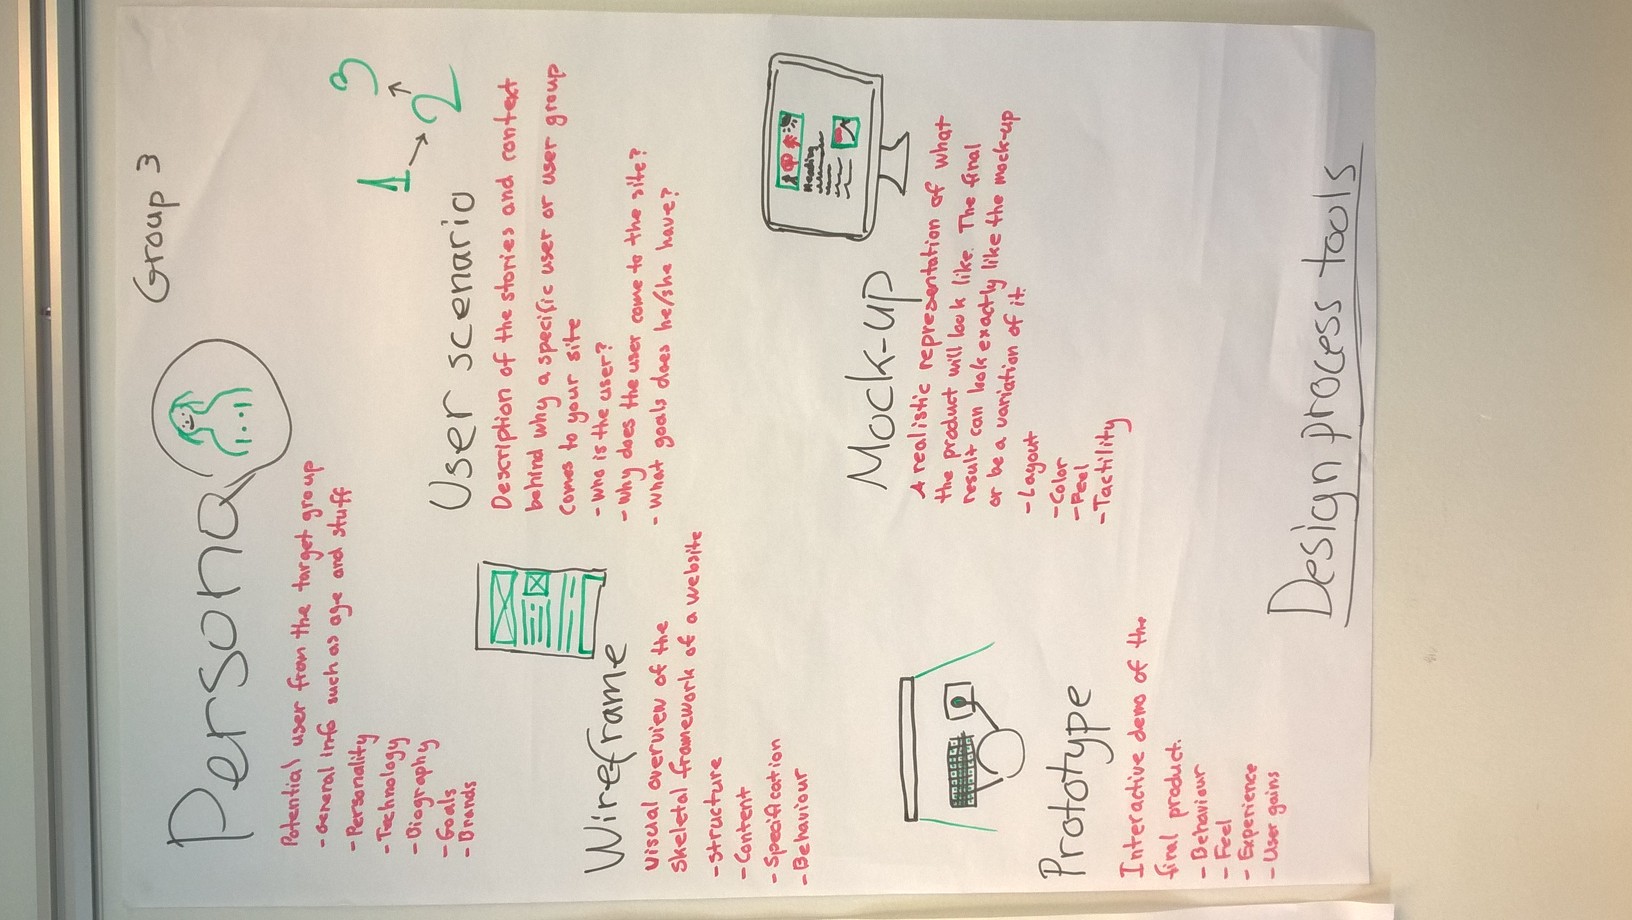 Group 3
Persona
Potential user from the target group
- General info such as age and stuff
- Personality
- Technology
- Biography
- Goals
- Brands
1 → 2 → 3
User scenario
Description of the stories and context
behind why a specific user or user group
comes to your site
- Who is the user?
- Why does the user come to the site?
- What goals does he/she have?
Wireframe
Visual overview of the
skeletal framework of a website
- Structure
- Content
- Specification
- Behaviour
Mock-up
A realistic representation of what
the product will look like. The final
result can look exactly like the mock-up
or be a variation of it.
- Layout
- Color
- Feel
- Tactility
Heading
Prototype
Interactive demo of the
final product.
- Behaviour
- Feel
- Experience
- User gains
Design process tools